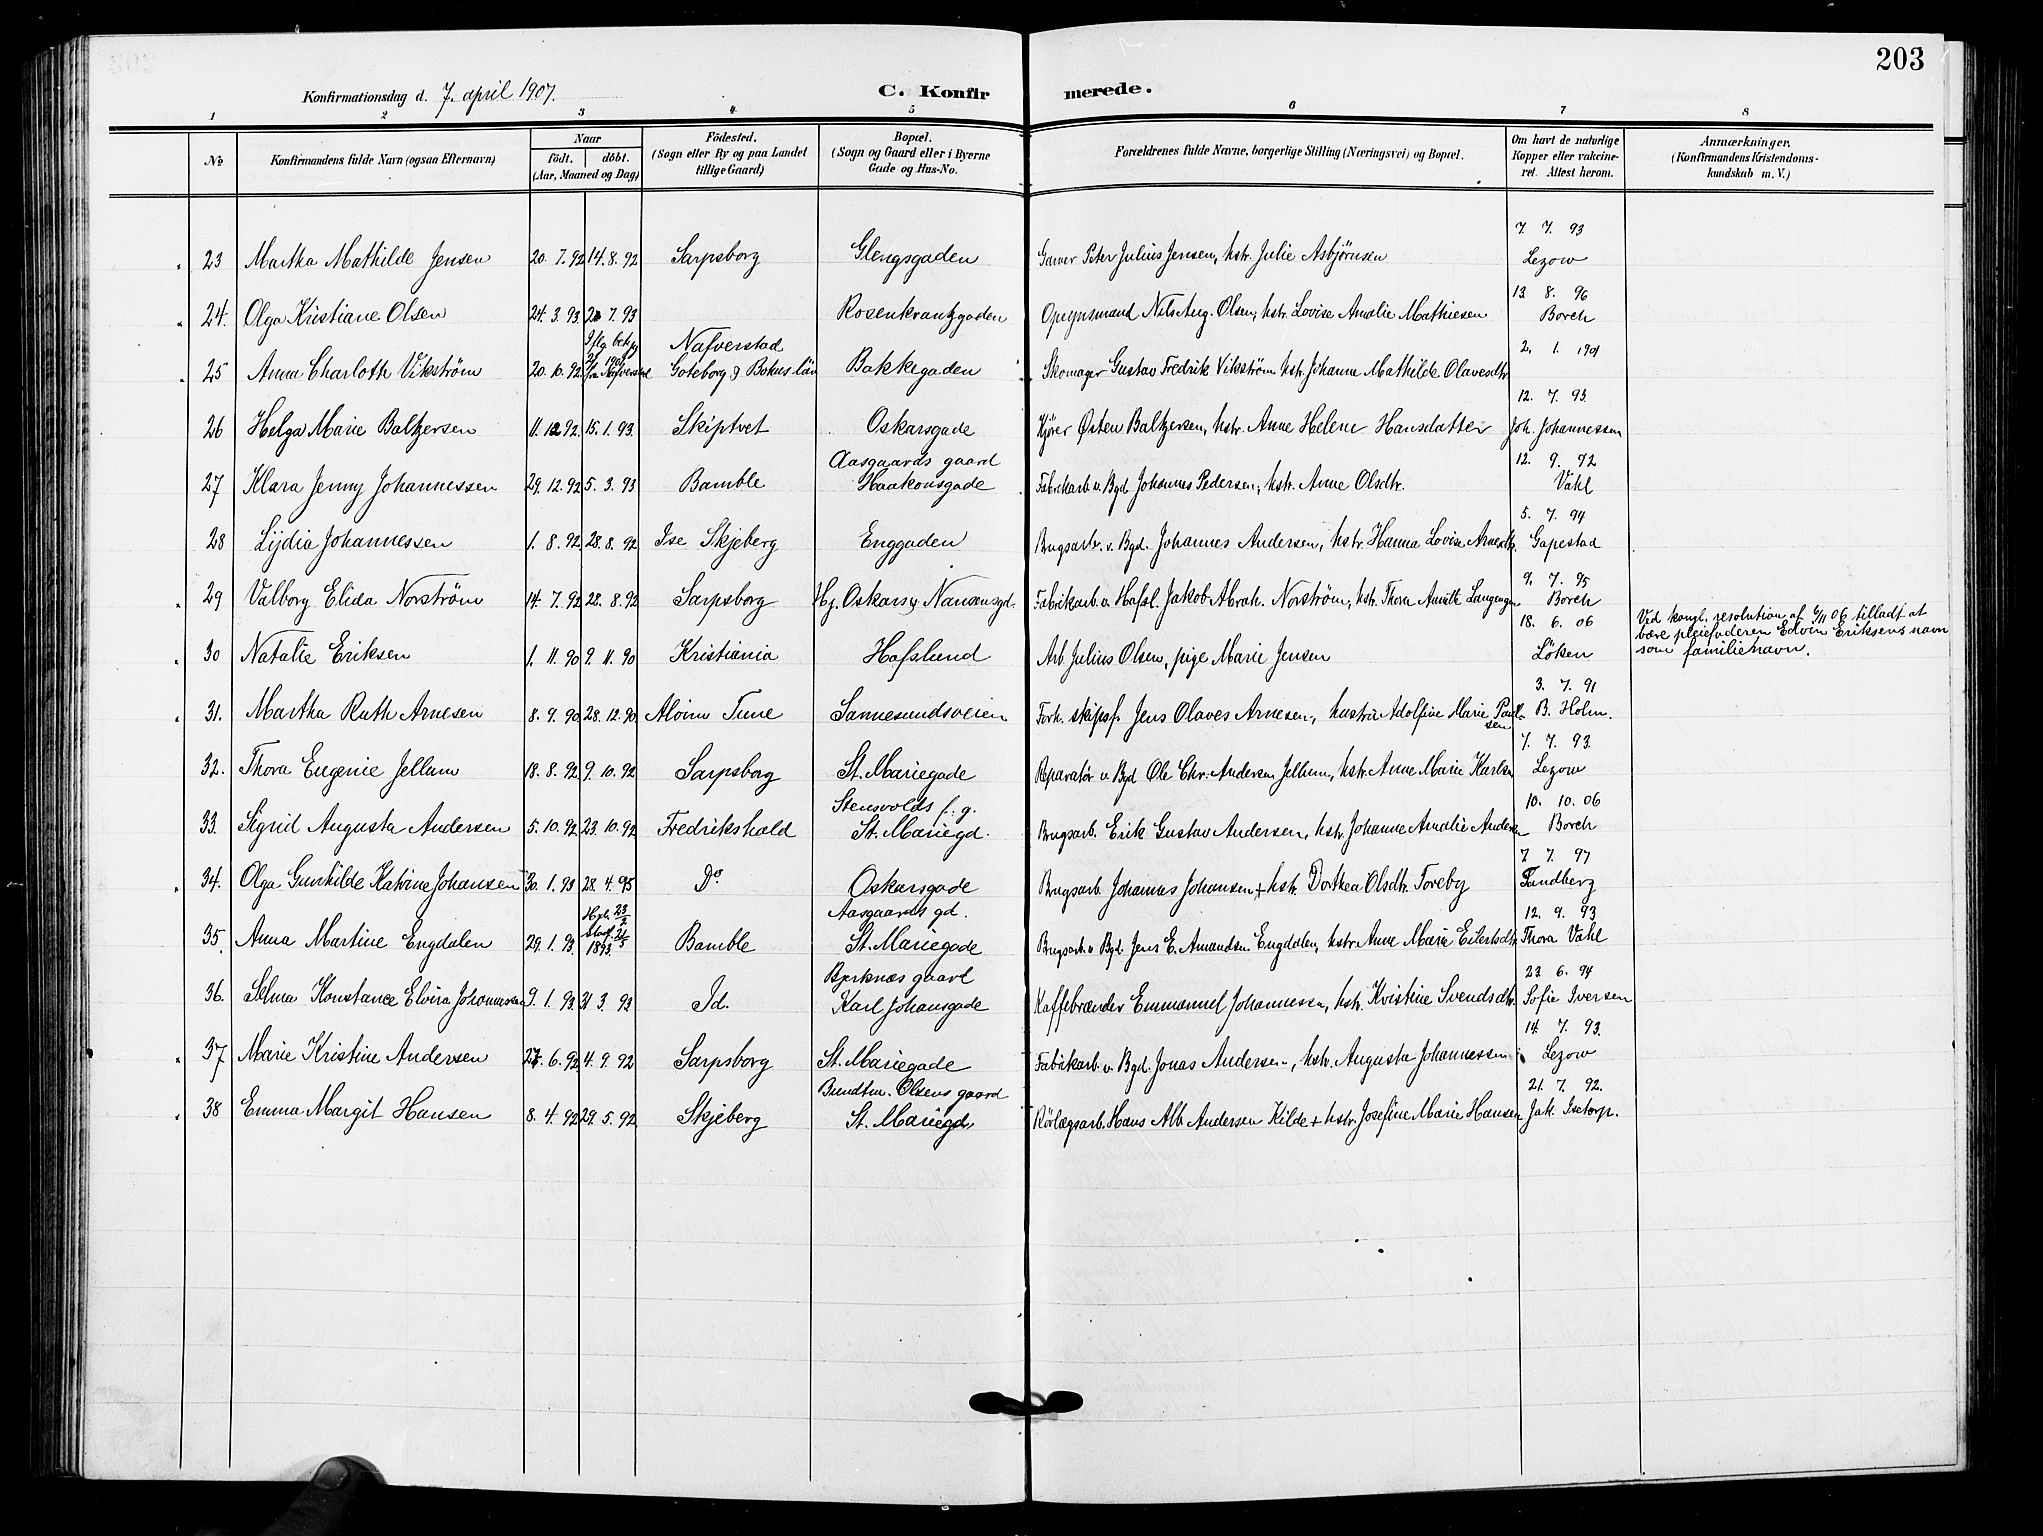 203
Konfirmationsdag d. 7. april 1907.
C. Konfirmerede.
1 2 3 4 5 6 7 8
No
Konfirmandens fulde Navn (ogsaa Efternavn)
Naar
födt. döbt.
(Aar, Maaned og Dag)
Födested.
(Sogn eller By og paa Landet
tillige Gaard)
Bopæl.
(Sogn og Gaard eller i Byerne
Gade og Hus-No.
Forældrenes fulde Navne, borgerlige Stilling (Næringsvei) og Bopæl.
Om havt de naturlige
Kopper eller vakcine-
ret. Attest herom.
Anmærkninger.
(Konfirmandens Kristendoms-
kundskab m. V.)
7. 7. 93
23 Martha Mathilde Jensen 20. 7. 92 14. 8. 92 Sarpsborg Glengsgaden Garver Peter Julius Jensen, hstr. Julie Asbjørnsen Lezow
13. 8. 96
24. Olga Kristiane Olsen 24. 3. 93 7. 93 Rosenkrantzgaden Opsynsmand Nils Aug. Olsen, hstr. Lovise Amalie Mathiesen Borch
Iflg. Nafverstad 2. 1. 1901
25 Anna Charloth Vikström 20. 10. 92 fra Nafverstad Göteborg & Bohus län Bakkegaden Skomager Gustav Fredrik Vikström hstr. Johanne Mathilde Olavesdtr
12. 7. 93
26 Helga Marie Baltzersen 11. 12 92. 15. 1. 93. Skiptvet Oskarsgade Kjörer Østen Baltzersen, hstr. Anne Helene Hansdatter Joh. Johannessen
Aasgaards gaard 12. 9. 92
27 Klara Jenny Johannessen 29. 12. 92 5. 3. 93 Bamble Haakonsgade Fabrikarb. v. Bgd. Johannes Pedersen, hstr. Anne Olsdtr. Vahl
5. 7. 94
28 Lydia Johannessen 1. 8. 92 28. 8. 92 Ise Skjeberg Enggaden Brugsarb. v. Bgd. Johannes Andersen, hstr. Hanna Lovise Arnesdtr. Gapestad
9. 7. 95
29 Valborg Elida Norström 14. 7. 92 28. 8. 92 Sarpsborg Hj. Oskars & Nansensgd. Fabrikarb. v. Hafsl. Jakob Abrah. Norström, hstr. Thora Amilie Langengen Borch
18. 6. 06
30 Natalie Eriksen 1. 11. 90 9. 11. 90 Kristiania Hafslund Arb. Julius Olsen, pige Marie Jensen Löken
Ved kongl. resolution af 6/11 06 tilladt at
bære pleiefaderen Edvin Eriksens navn
som familienavn.
3. 7. 91
31. Martha Ruth Arnesen 8. 9. 90 28. 12. 90 Alvim Tune Sannesundsveien Forh. skipsf. Jens Olaves Arnesen, hustru Adolfine Marie Paulsen B. Holm.
7. 7. 93.
32. Thora Eugenie Jellum 18. 8. 92 9. 10. 92 Sarpsborg St. Mariegade Reparatör v Bgd Ole Chr. Andersen Jellum, hstr. Anne Marie Karlsen Lezow
Stensvolds f. g. 10. 10. 06
33. Sigrid Augusta Andersen 5. 10. 92 23. 10. 92 Fredrikshald St. Mariegd. Brugsarb. Erik Gustav Andersen, hstr. Johanne Amalie Andersen Borch
7. 7. 97
34. Olga Gunhilde Katrine Johansen 30. 1. 93 28. 4. 95 Do Oskarsgade Brugsarb. Johannes Johansen + hstr. Dorthea Olsdtr. Toreby Sandberg
Hjd. 23/2 Aasgaards gd. 12. 9. 93
35. Anna Martine Engdalen 29. 1. 93. Stadf. 21/5 1893. Bamble St. Mariegade Brugsarb. v Bgd. Jens E. Amundsen Engdalen, hstr Anne Marie Eilertsdtr. Thora Vahl
Bjerknæs gaard 23 6. 94
36. Selma Konstance Elvira Johannessen 9. 1. 93. 31 3. 93 Id. Karl Johansgade Kaffebrænder Emmanuel Johannessen, hstr. Kristine Svendsdtr. Sofie Iversen
14. 7. 93.
37 Marie Kristine Andersen 27. 6. 92 4. 9. 92 Sarpsborg St. Mariegade Fabrikarb. v. Bgd. Jonas Andersen, hstr. Augusta Johannessen Lezow
Bundtm. Olsens gaard 21. 7. 92.
38 Emma Margit Hansen 8. 4. 92 29. 5. 92 Skjeberg St. Mariegd. Rörlægsarb. Hans Alb. Andersen Kilde + hstr. Josefine Marie Hansen Jak. Isetorp.